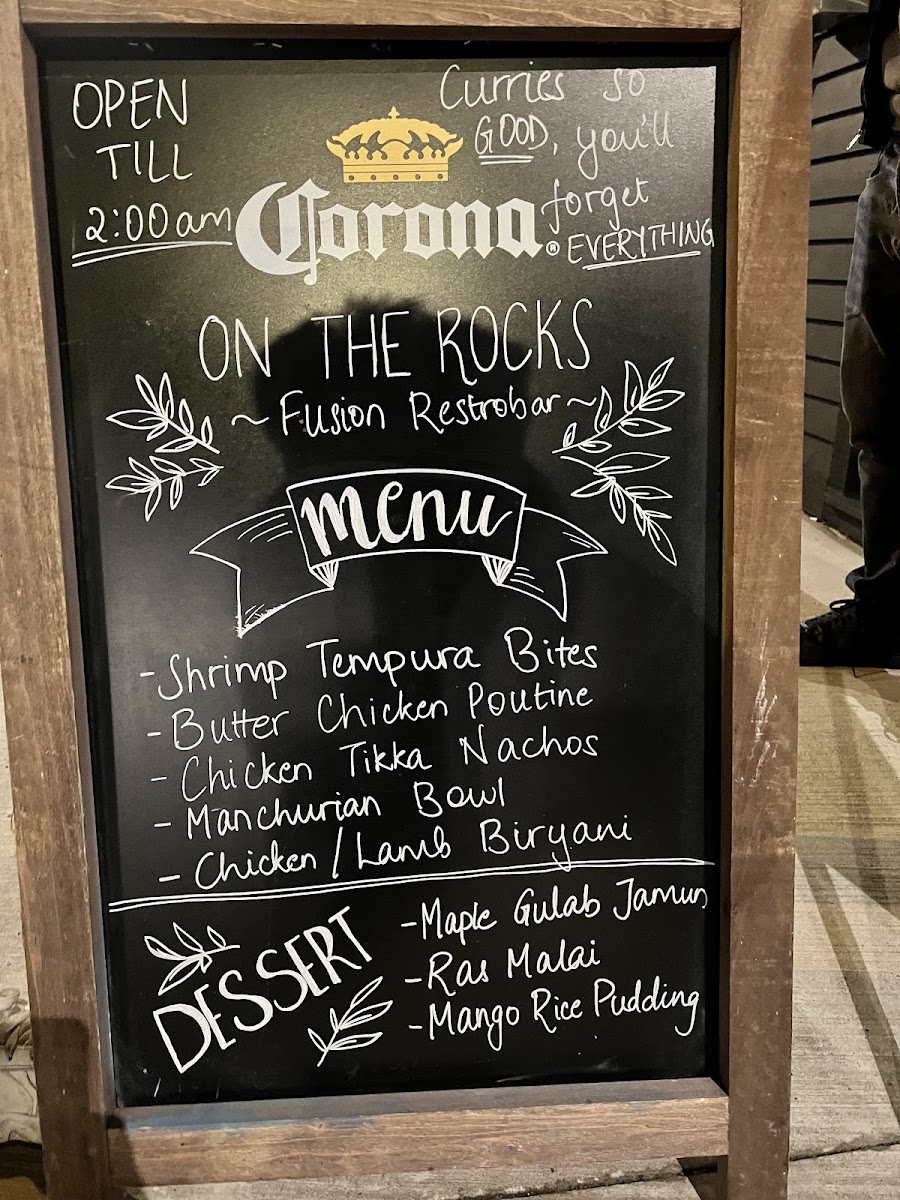 OPEN
TILL
2:00am
Curries so
GOOD, you'll
forget
EVERYTHING
Corona®
ON THE ROCKS
~ Fusion Restrobar ~
menu
- Shrimp Tempura Bites
- Butter Chicken Poutine
- Chicken Tikka Nachos
- Manchurian Bowl
- Chicken / Lamb Biryani
DESSERT
- Maple Gulab Jamun
- Ras Malai
- Mango Rice Pudding